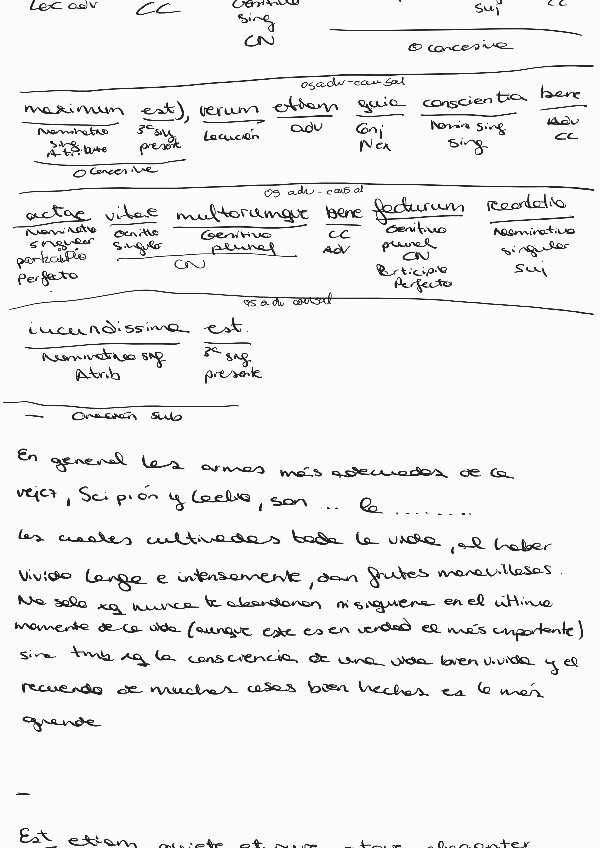 Loc adv CC Genitivo sing CN suj CC
O concesiva
os adv-causal
maximum est), verum etiam quia conscientia bene
Nominativo sing Atributo 3ª sing presente Locución adv Conj Nex Nomina sing sing Adv CC
O Concesiva
os adv-causal
actae vitae multorumque bene factorum recordatio
Nominativo singular participio Perfecto Genitivo singular Genitivo plural CN CC Adv Genitivo plural CN Participio Perfecto Nominativo singular suj
os adv causal
iucundissima est.
Nominativo sing Atrib 3ª sing presente
— Oración sub
En general las armas más adecuadas de la
vejez, Scipión y Laelio, son ... la ........
las cuales cultivadas toda la vida, al haber
vivido larga e intensamente, dan frutos maravillosos.
No solo xq nunca te abandonan ni siquiera en el último
momento de la vida (aunque este es en verdad el más importante)
sino tmb xq la consciencia de una vida bien vivida y el
recuerdo de muchas cosas bien hechas es lo más
grande
—
Est etiam quiete et pure atque eleganter